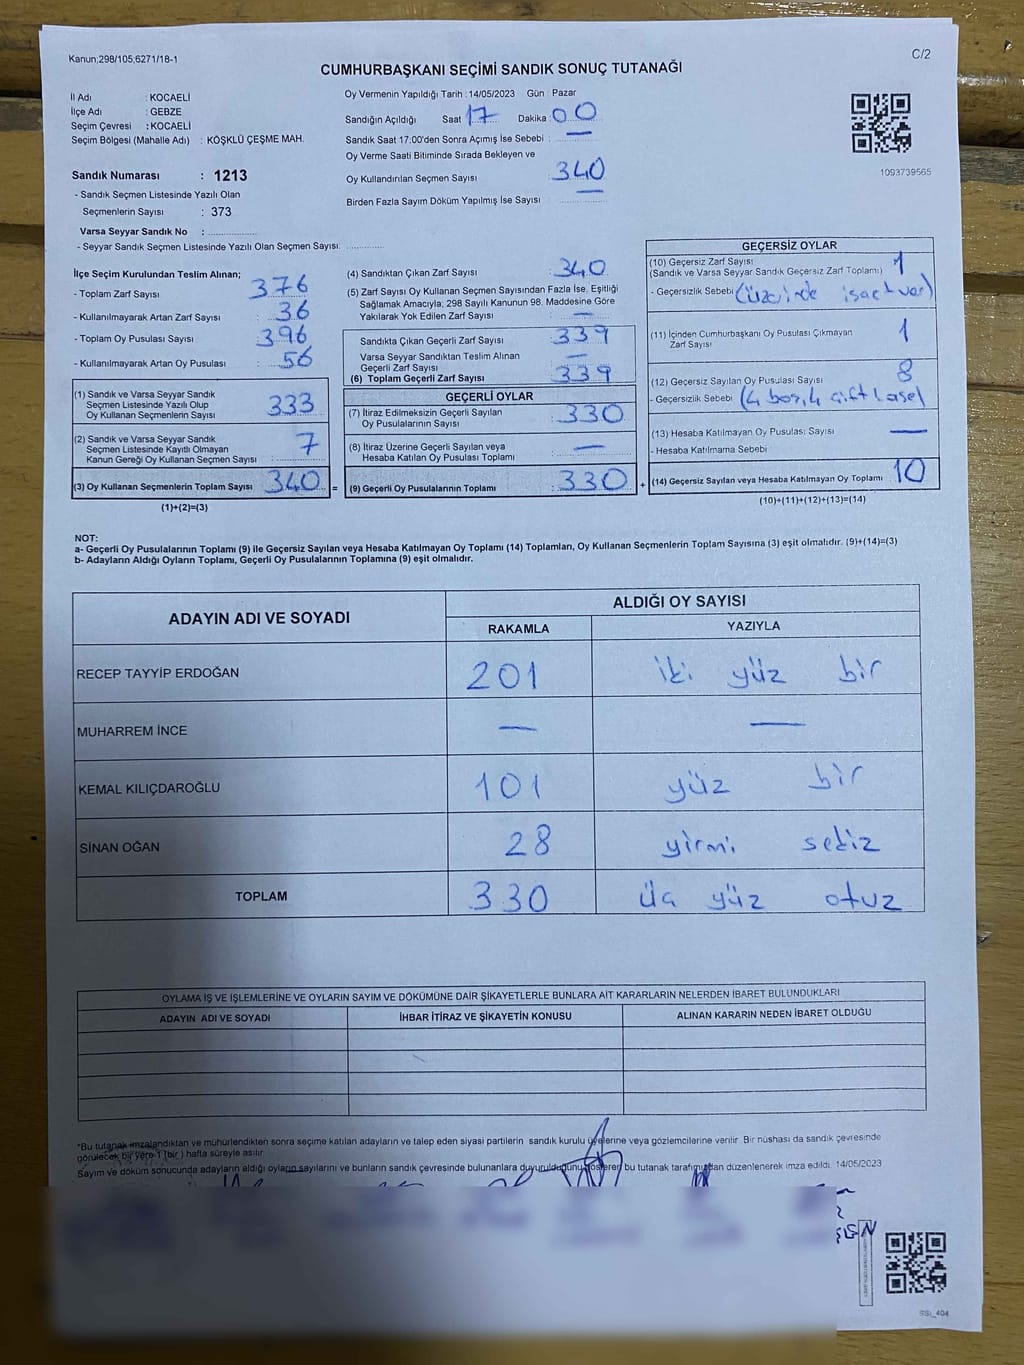 Kanun;298/105;6271/18-1
C/2
CUMHURBAŞKANI SEÇİMİ SANDIK SONUÇ TUTANAĞI
İl Adı : KOCAELİ
İlçe Adı : GEBZE
Seçim Çevresi : KOCAELİ
Seçim Bölgesi (Mahalle Adı) : KÖŞKLÜ ÇEŞME MAH.
Sandık Numarası : 1213
- Sandık Seçmen Listesinde Yazılı Olan
Seçmenlerin Sayısı : 373
Varsa Seyyar Sandık No :
- Seyyar Sandık Seçmen Listesinde Yazılı Olan Seçmen Sayısı:
Oy Vermenin Yapıldığı Tarih : 14/05/2023 Gün : Pazar
Sandığın Açıldığı Saat 17 Dakika : 00
Sandık Saat 17:00'den Sonra Açımış İse Sebebi : —
Oy Verme Saati Bitiminde Sırada Bekleyen ve
Oy Kullandırılan Seçmen Sayısı : 340
Birden Fazla Sayım Döküm Yapılmış İse Sayısı —
1093739565
İlçe Seçim Kurulundan Teslim Alınan;
- Toplam Zarf Sayısı : 376
- Kullanılmayarak Artan Zarf Sayısı : 36
- Toplam Oy Pusulası Sayısı : 396
- Kullanılmayarak Artan Oy Pusulası : 56
(1) Sandık ve Varsa Seyyar Sandık
Seçmen Listesinde Yazılı Olup
Oy Kullanan Seçmenlerin Sayısı : 333
(2) Sandık ve Varsa Seyyar Sandık
Seçmen Listesinde Kayıtlı Olmayan
Kanun Gereği Oy Kullanan Seçmen Sayısı : 7
(3) Oy Kullanan Seçmenlerin Toplam Sayısı : 340 =
(1)+(2)=(3)
(4) Sandıktan Çıkan Zarf Sayısı : 340
(5) Zarf Sayısı Oy Kullanan Seçmen Sayısından Fazla İse, Eşitliği
Sağlamak Amacıyla; 298 Sayılı Kanunun 98. Maddesine Göre
Yakılarak Yok Edilen Zarf Sayısı : —
Sandıkta Çıkan Geçerli Zarf Sayısı : 339
Varsa Seyyar Sandıktan Teslim Alınan
Geçerli Zarf Sayısı : —
(6) Toplam Geçerli Zarf Sayısı : 339
GEÇERLİ OYLAR
(7) İtiraz Edilmeksizin Geçerli Sayılan
Oy Pusulalarının Sayısı : 330
(8) İtiraz Üzerine Geçerli Sayılan veya
Hesaba Katılan Oy Pusulası Toplamı : —
(9) Geçerli Oy Pusulalarının Toplamı : 330 +
GEÇERSİZ OYLAR
(10) Geçersiz Zarf Sayısı
(Sandık ve Varsa Seyyar Sandık Geçersiz Zarf Toplamı) 1
- Geçersizlik Sebebi (üzerinde işaet var)
(11) İçinden Cumhurbaşkanı Oy Pusulası Çıkmayan
Zarf Sayısı 1
(12) Geçersiz Sayılan Oy Pusulası Sayısı 8
- Geçersizlik Sebebi (4 boş, 4 çift kaşe)
(13) Hesaba Katılmayan Oy Pusulası Sayısı —
- Hesaba Katılmama Sebebi
(14) Geçersiz Sayılan veya Hesaba Katılmayan Oy Toplamı 10
(10)+(11)+(12)+(13)=(14)
NOT:
a- Geçerli Oy Pusulalarının Toplamı (9) ile Geçersiz Sayılan veya Hesaba Katılmayan Oy Toplamı (14) Toplamları, Oy Kullanan Seçmenlerin Toplam Sayısına (3) eşit olmalıdır. (9)+(14)=(3)
b- Adayların Aldığı Oyların Toplamı, Geçerli Oy Pusulalarının Toplamına (9) eşit olmalıdır.
ADAYIN ADI VE SOYADI ALDIĞI OY SAYISI
RAKAMLA YAZIYLA
RECEP TAYYİP ERDOĞAN 201 iki yüz bir
MUHARREM İNCE — —
KEMAL KILIÇDAROĞLU 101 yüz bir
SİNAN OĞAN 28 yirmi sekiz
TOPLAM 330 üç yüz otuz
OYLAMA İŞ VE İŞLEMLERİNE VE OYLARIN SAYIM VE DÖKÜMÜNE DAİR ŞİKAYETLERLE BUNLARA AİT KARARLARIN NELERDEN İBARET BULUNDUKLARI
ADAYIN ADI VE SOYADI İHBAR İTİRAZ VE ŞİKAYETİN KONUSU ALINAN KARARIN NEDEN İBARET OLDUĞU
*Bu tutanak imzalandıktan ve mühürlendikten sonra seçime katılan adayların ve talep eden siyasi partilerin sandık kurulu üyelerine veya gözlemcilerine verilir. Bir nüshası da sandık çevresinde
görülecek bir yere 1 (bir) hafta süreyle asılır.
Sayım ve döküm sonucunda adayların aldığı oyların sayılarını ve bunların sandık çevresinde bulunanlara duyurulduğunu gösteren bu tutanak tarafımızdan düzenlenerek imza edildi. 14/05/2023
SSi_404